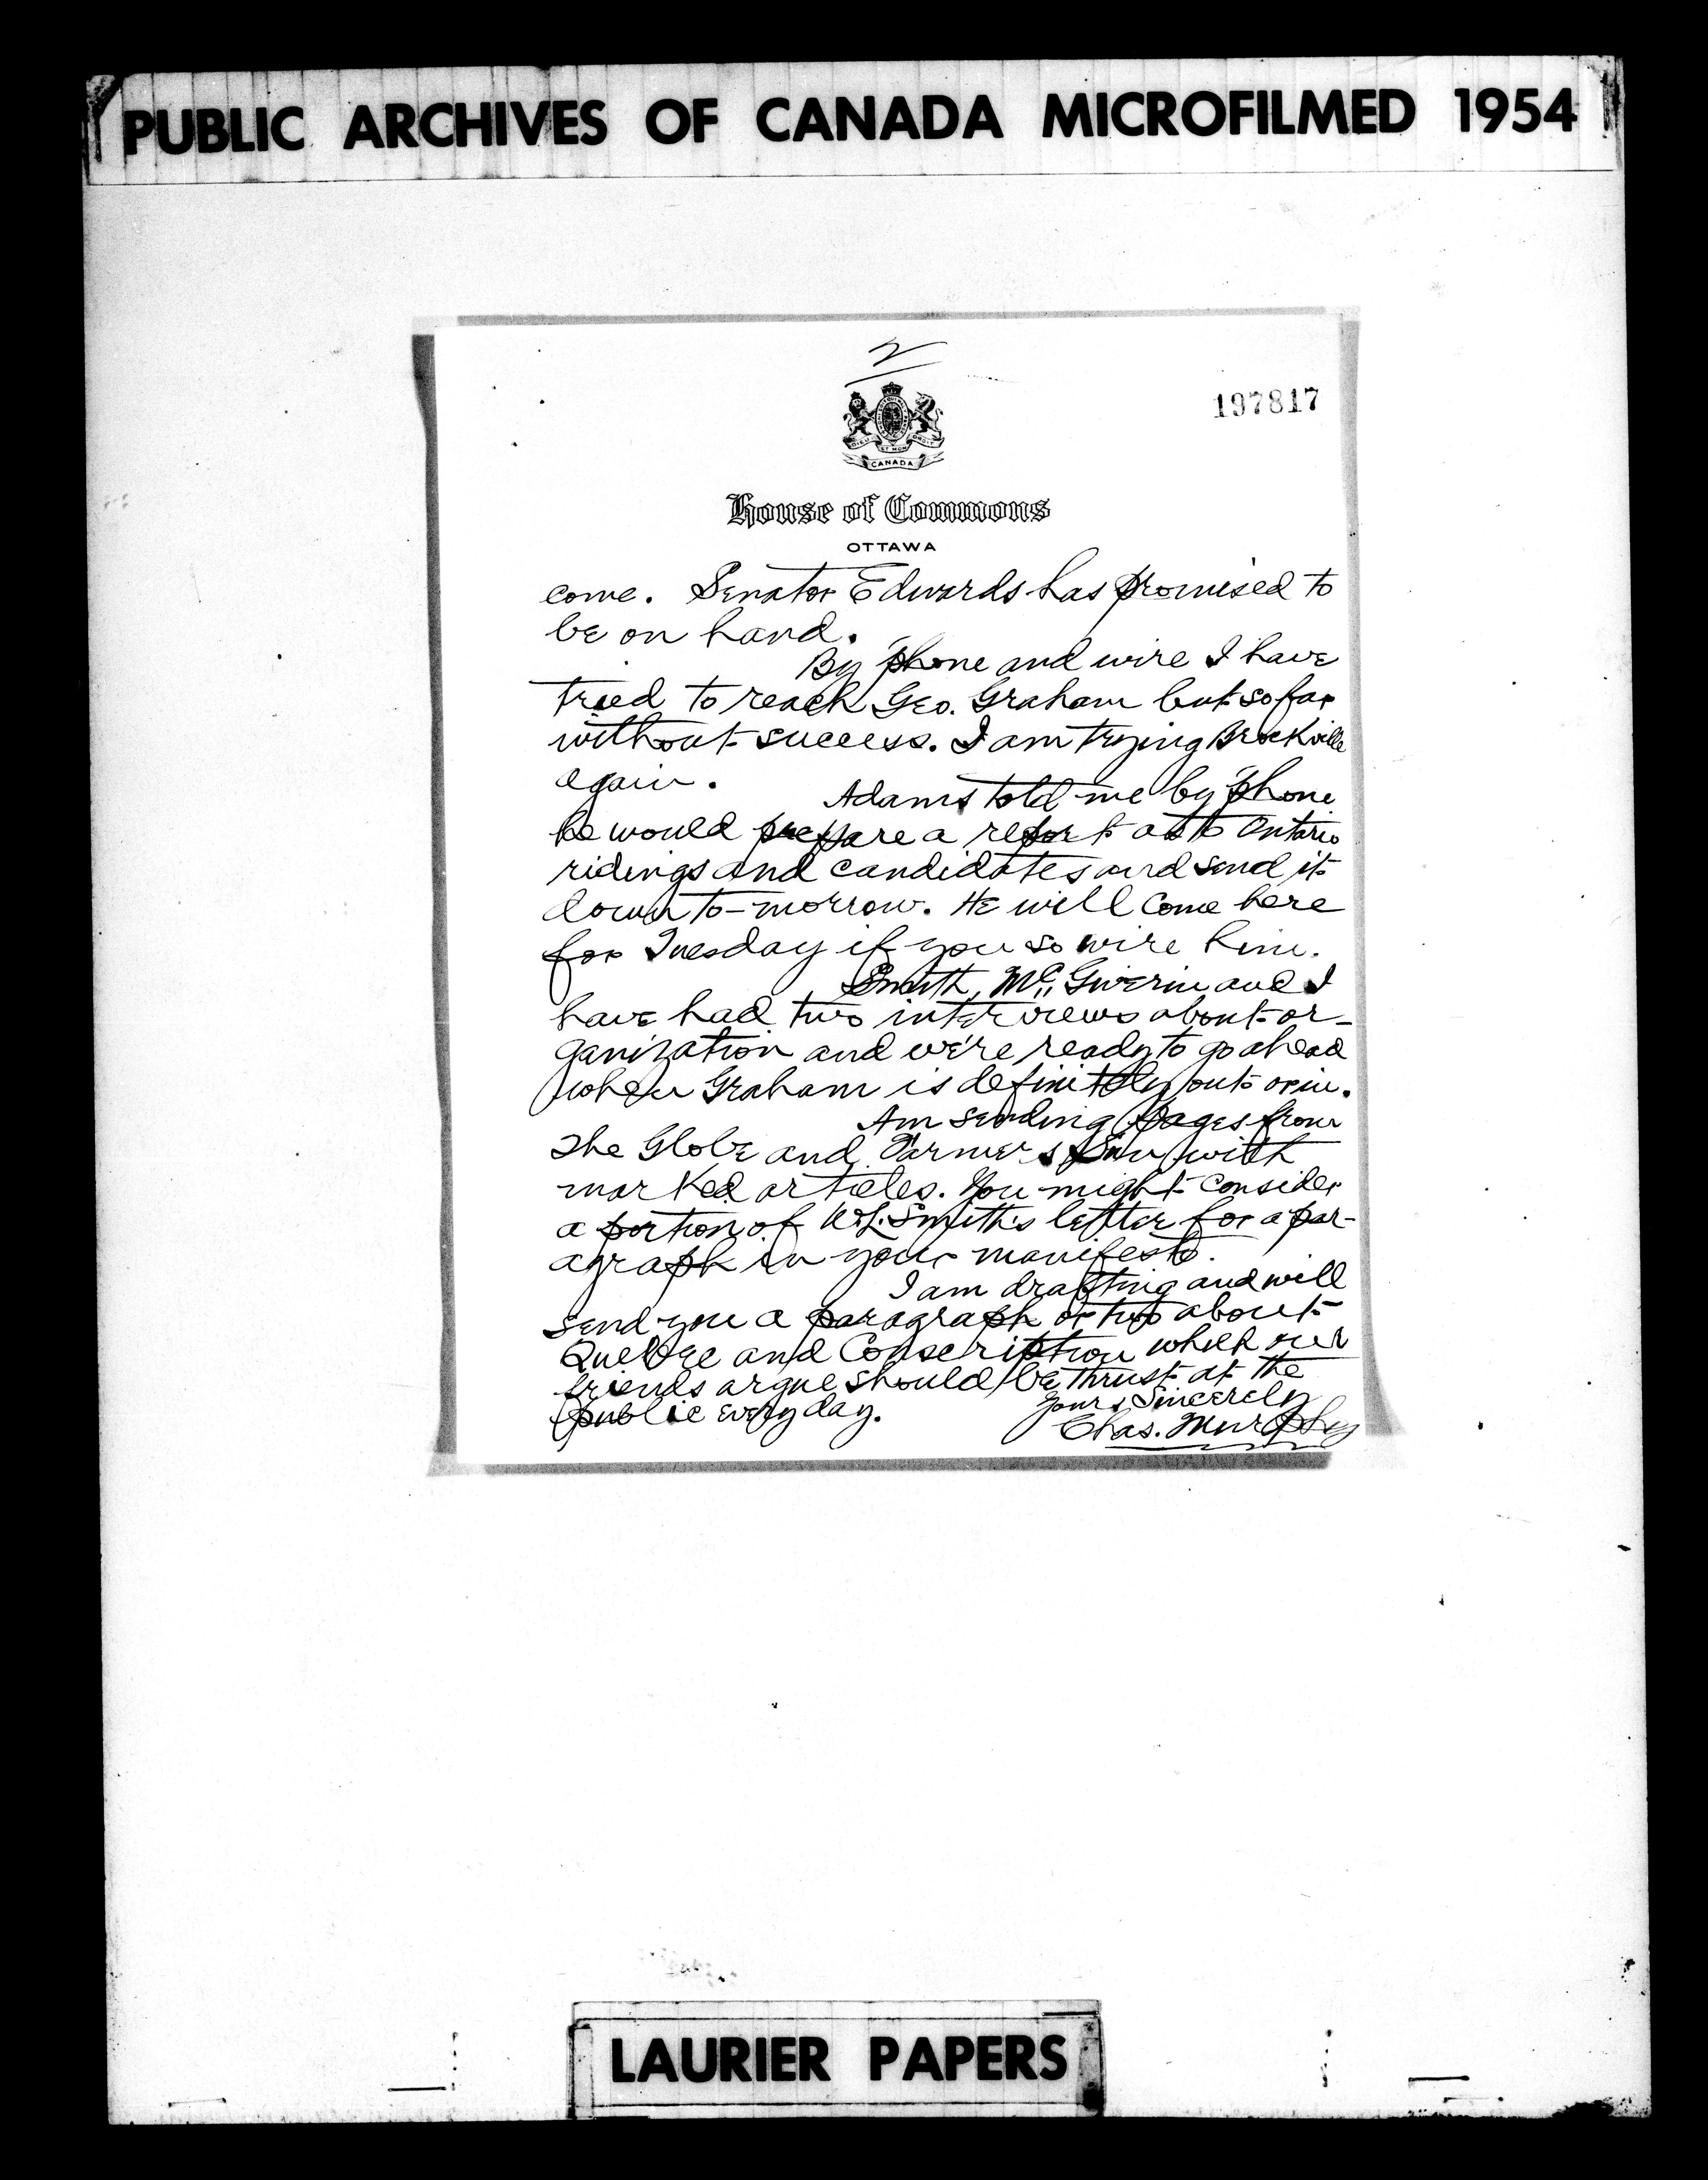 PUBLIC ARCHIVES OF CANADA MICROFILMED 1954
2
197817
DIEU ET MON DROIT
CANADA
House of Commons
OTTAWA
come. Senator Edwards has promised to
be on hand.
By 'phone and wire I have
tried to reach Geo. Graham but so far
without success. I am trying Brockville
again.
Adams told me by 'phone
he would prepare a report as to Ontario
ridings and candidates and send it
down to-morrow. He will come here
for Tuesday if you so wire him.
Smith, McGiverin and I
have had two interviews about or-
ganization and we're ready to go ahead
when Graham is definitely out or in.
Am sending pages from
The Globe and Farmer's Sun with
marked articles. You might consider
a portion of W.L. Smith's letter for a par-
agraph in your manifesto.
I am drafting and will
send you a paragraph or two about
Quebec and Conscription which our
friends argue should be thrust at the
public every day.
Yours Sincerely
Chas. Murphy
LAURIER PAPERS